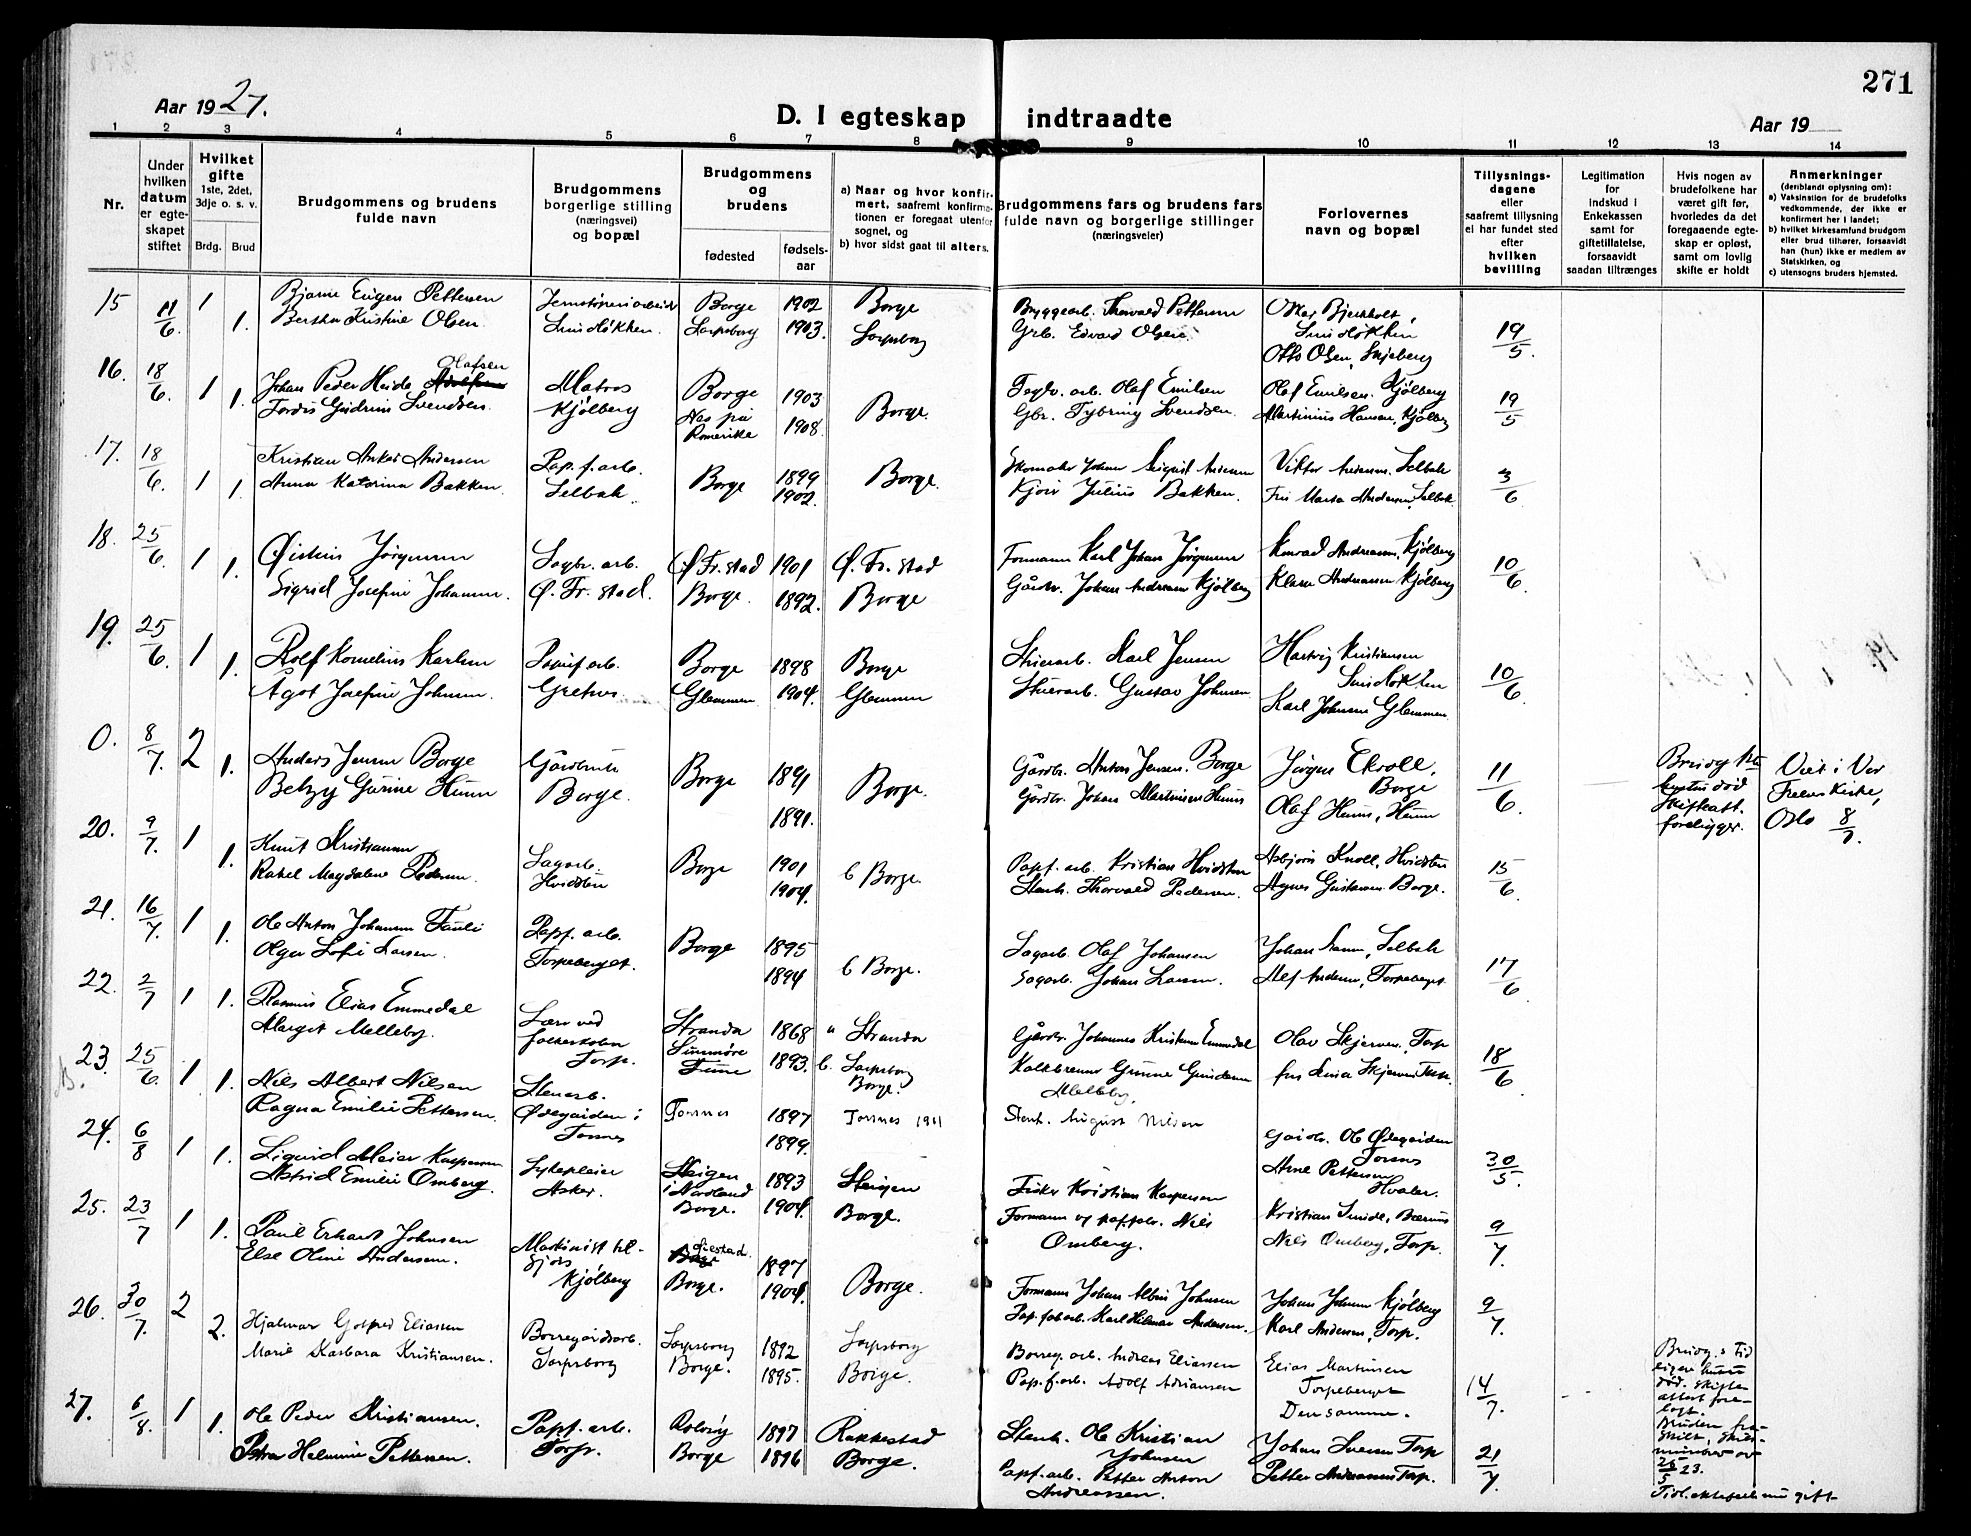 271
Aar 1927.
D. I egteskap indtraadte
Aar 19
1 2 3 4 5 6 7 8 9 10 11 12 13 14
Nr.
Under hvilken datum er egteskapet stiftet
Hvilket gifte 1ste, 2det, 3dje o. s. v.
Brdg. Brud
Brudgommens og brudens fulde navn
Brudgommens borgerlige stilling (næringsvei) og bopæl
Brudgommens og brudens
fødested
fødsels-aar
a) Naar og hvor konfirmert, saafremt konfirmationen er foregaat utenfor sognet, og
b) hvor sidst gaat til alters.
Brudgommens fars og brudens fars fulde navn og borgerlige stillinger (næringsveier)
Forlovernes navn og bopæl
Tillysningsdagene eller saafremt tillysning ei har fundet sted efter hvilken bevilling
Legitimation for indskud i Enkekassen samt for giftetillatelse, forsaavidt saadan tiltrænges
Hvis nogen av brudefolkene har været gift før, hvorledes da det foregaaende egteskap er opløst, samt om lovlig skifte er holdt
Anmerkninger
(deriblandt oplysning om):
a) Vaksination for de brudefolks vedkommende, der ikke er konfirmert her i landet;
b) hvilket kirkesamfund brudgom eller brud tilhører, forsaavidt han (hun) ikke er medlem av Statskirken, og
c) utensogns bruders hjemsted.
15 11/6. 1 1. Bjarne Eugen Pettersen Borge 1902 Borge Bryggearb. Thorvald Pettersen
Bertha Kristine Olsen. Sarpsborg 1903. Sarpsborg Grb. Edvard Olsen 19/5.
Otto Olsen, Skjeberg
16. 18/6. 1 1. Johan Peder Heide Olafsen Matros Borge 1903 Borge. Teglv. arb. Olaf Emilsen Olaf Emilsen. Kjølberg 19/5
Tordis Gudrun Svendsen. Kjølberg Nes på Romerike 1908. Gbr. Tybring Svendsen. Martinius Hansen, Kjølberg
17. 18/6. 1 1. Kristian Anker Andersen Pap. f. arb. Borge 1899 Borge. Skomaker Johan Sigurd Andersen Viktor Andersen. Selbak 3/6
Anna Katarina Bakken. Selbak. 1902. Julius Bakken. Fru Marta Andersen, Selbak
18. 25/6. 1 1. Øistein Jørgensen Sagbr. arb. Ø. Fr. stad 1901 Ø. Fr. stad Formann Karl Johan Jørgensen Konrad Andreassen, Kjølberg 10/6
Sigrid Josefine Johansen. Ø. Fr. stad. Borge. 1892. Borge Gårdbr. Johan Andreassen Kjølberg Klara Andreassen Kjølberg
19. 25/6. 1 1. Rolf Kornelius Karlsen Borge 1898 Borge Karl Jensen Hartvig Kristiansen 10/6
Agot Josefine Johnsen. Glemmen 1904. Glemmen Gustav Johnsen Karl Johnsen Glemmen
0. 8/7. 2 1. Anders Jensen Borge Gårdbruker Borge 1891 Borge. Gårdbr. Anton Jensen. Borge Jørgen Ekroll, Borge 11/6.
Betzy Gurine Hunn Borge. 1891. Gårdbr. Johan Martinsen Hunn Olaf Hunn, Hunn
skifteatt. foreligger. Viet i Vår Frelsers Kirke, Oslo 8/7.
20. 9/7. 1 1. Knut Kristiansen Sagarb. Borge 1901 b Borge. Papf. arb. Kristian Hvidsten Asbjørn Knoll, Hvidsten 15/6
Rakel Magdalene Pedersen. Hvidsten 1904. Stenh. Thorvald Pedersen. Agnes Gustavsen Borge.
21. 16/7. 1 1. Ole Anton Johansen Papf. arb. Borge 1895 b Borge. Sagarb. Olaf Johansen Johan Larsen, Selbak 17/6
Olga Sofie Larsen. Torpeberget. 1894 Sagarb. Johan Larsen. Alf Andersen, Torpeberget
22. 2/7 1 1. Rasmus Elias Emmedal Lærer ved folkeskolen Torp. Stranda Sunnmøre 1868 Stranda Gårdbr. Johannes Kristensen Emmedal Olav Skjerven, Torp 18/6
Margit Melleby. Tune 1893. b. Sarpsborg Borge. Gunnar Gundersen Melleby. fru Anna Skjerven Torp.
23. 25/6. 1 1. Nils Albert Nilsen Stenarb. Ødegården i Torsnes Torsnes 1897 Torsnes 1911 Stenh. August Nilsen Gårdbr. Ole Ødegården Torsnes 30/5.
Ragna Emilie Pettersen. 1899. Arne Pettersen Hvaler.
24. 6/8 1 1. Sigurd Meier Kaspersen Sykepleier Steigen i Nordland 1893 Steigen Fisker Kristian Kaspersen Kristian Smidt, Bærum 9/7.
Astrid Emilie Omberg. Asker. Borge. 1904. Borge. Formann Nils Omberg. Nils Omberg, Torp.
25. 23/7 1 1. Paul Erhart Johnsen Maskinist til sjøs Kjølberg 1897 Borge. Formann Johan Albin Johnsen Johan Johnsen Kjølberg 9/7.
Else Oline Andersen. Borge. 1904. Pap. fab. arb. Karl Hilmar Andersen. Karl Andersen, Torp.
26. 30/7. 2 2. Hjalmar Gotfred Eliassen Borregårdsarb. Sarpsborg 1892 Sarpsborg Borreg. arb. Andreas Eliassen Elias Martinsen 14/7.
Marie Barbara Kristiansen. Sarpsborg Borge. 1895. Borge. Pap. f. arb. Adolf Adriansen Torpeberget
Densamme.
Brudg.s tidligere hustru død. Skifteattest forelagt. Bruden fraskilt, 25/5 23.
27. 6/8. 1 1. Ole Peder Kristiansen. Papf. arb. Rolvsøy 1897 Rakkestad Stenh. Ole Kristian Johnsen Johan Svensen Torp 21/7.
Petra Helmine Pettersen. Torp. Borge 1896 Borge. Papf. arb. Petter Anton Andreassen. Petter Andreassen Torp.